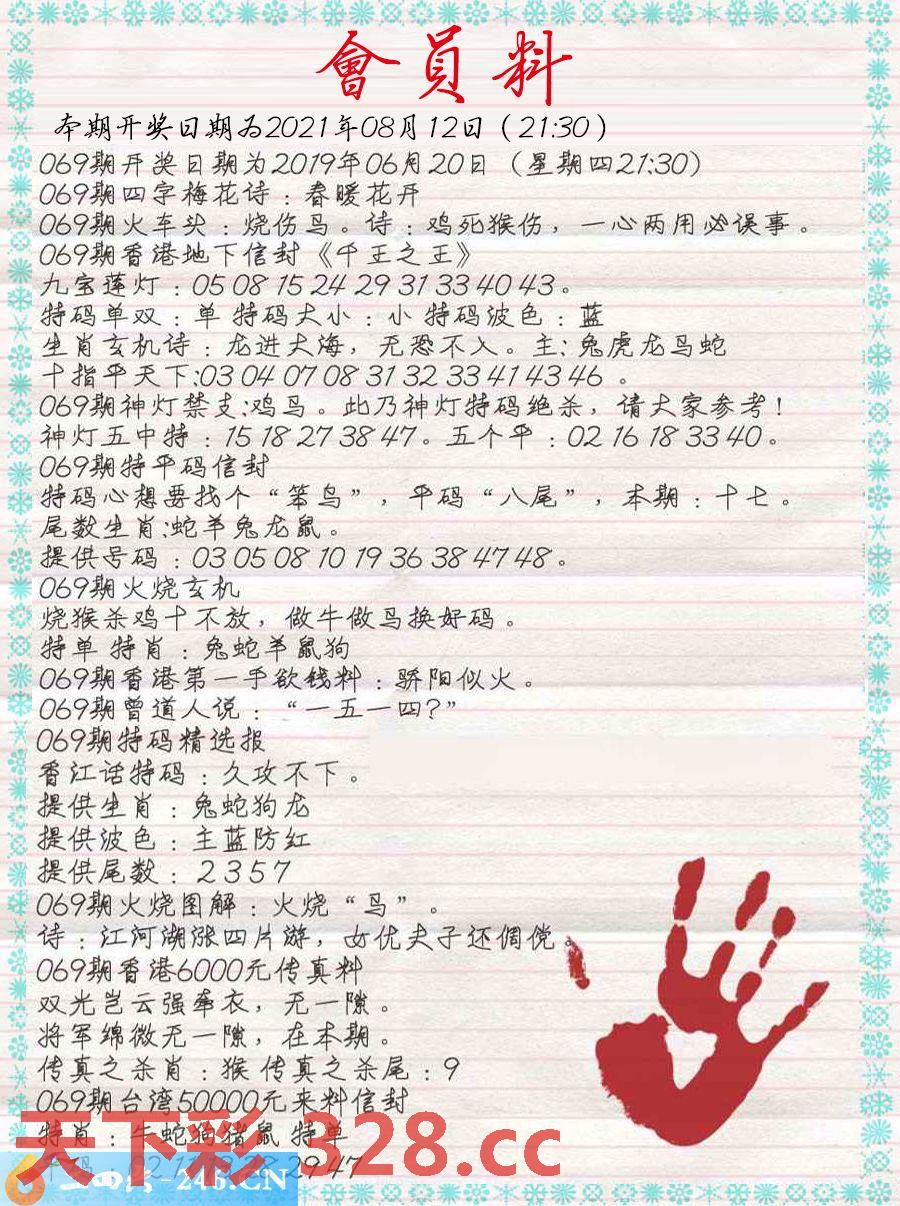 會員料
本期开奖日期为2021年08月12日（21:30）
069期开奖日期为2019年06月20日（星期四21:30）
069期四字梅花诗：春暖花开
069期火车头：烧伤鸟。诗：鸡死猴伤，一心两用必误事。
069期香港地下信封《千王之王》
九宝莲灯：05 08 15 24 29 31 33 40 43。
特码单双：单 特码大小：小 特码波色：蓝
生肖玄机诗：龙进大海，无恐不入。主:兔虎龙马蛇
十指平天下:03 04 07 08 31 32 33 41 43 46 。
069期神灯禁支:鸡鸟。此乃神灯特码绝杀，请大家参考！
神灯五中特：15 18 27 38 47。五个平：02 16 18 33 40。
069期特平码信封
特码心想要找个“笨鸟”，平码“八尾”，本期：十七。
尾数生肖:蛇羊兔龙鼠。
提供号码：03 05 08 10 19 36 38 47 48。
069期火烧玄机
烧猴杀鸡十不放，做牛做鸟换好码。
特单 特肖：兔蛇羊鼠狗
069期香港第一手欲钱料：骄阳似火。
069期曾道人说：“一五一四?”
069期特码精选报
香江话特码：久攻不下。
提供生肖：兔蛇狗龙
提供波色：主蓝防红
提供尾数：2 3 5 7
069期火烧图解：火烧“鸟”。
诗：江河湖涨四片游，女优夫子还倜傥。
069期香港6000元传真料
双光岂云强牵衣，无一隙。
将军绵微无一隙，在本期。
传真之杀肖：猴 传真之杀尾：9
069期台湾50000元来料信封
特肖：牛蛇狗猪鼠 特单
天下彩 328.cc
29 47
-246.CN